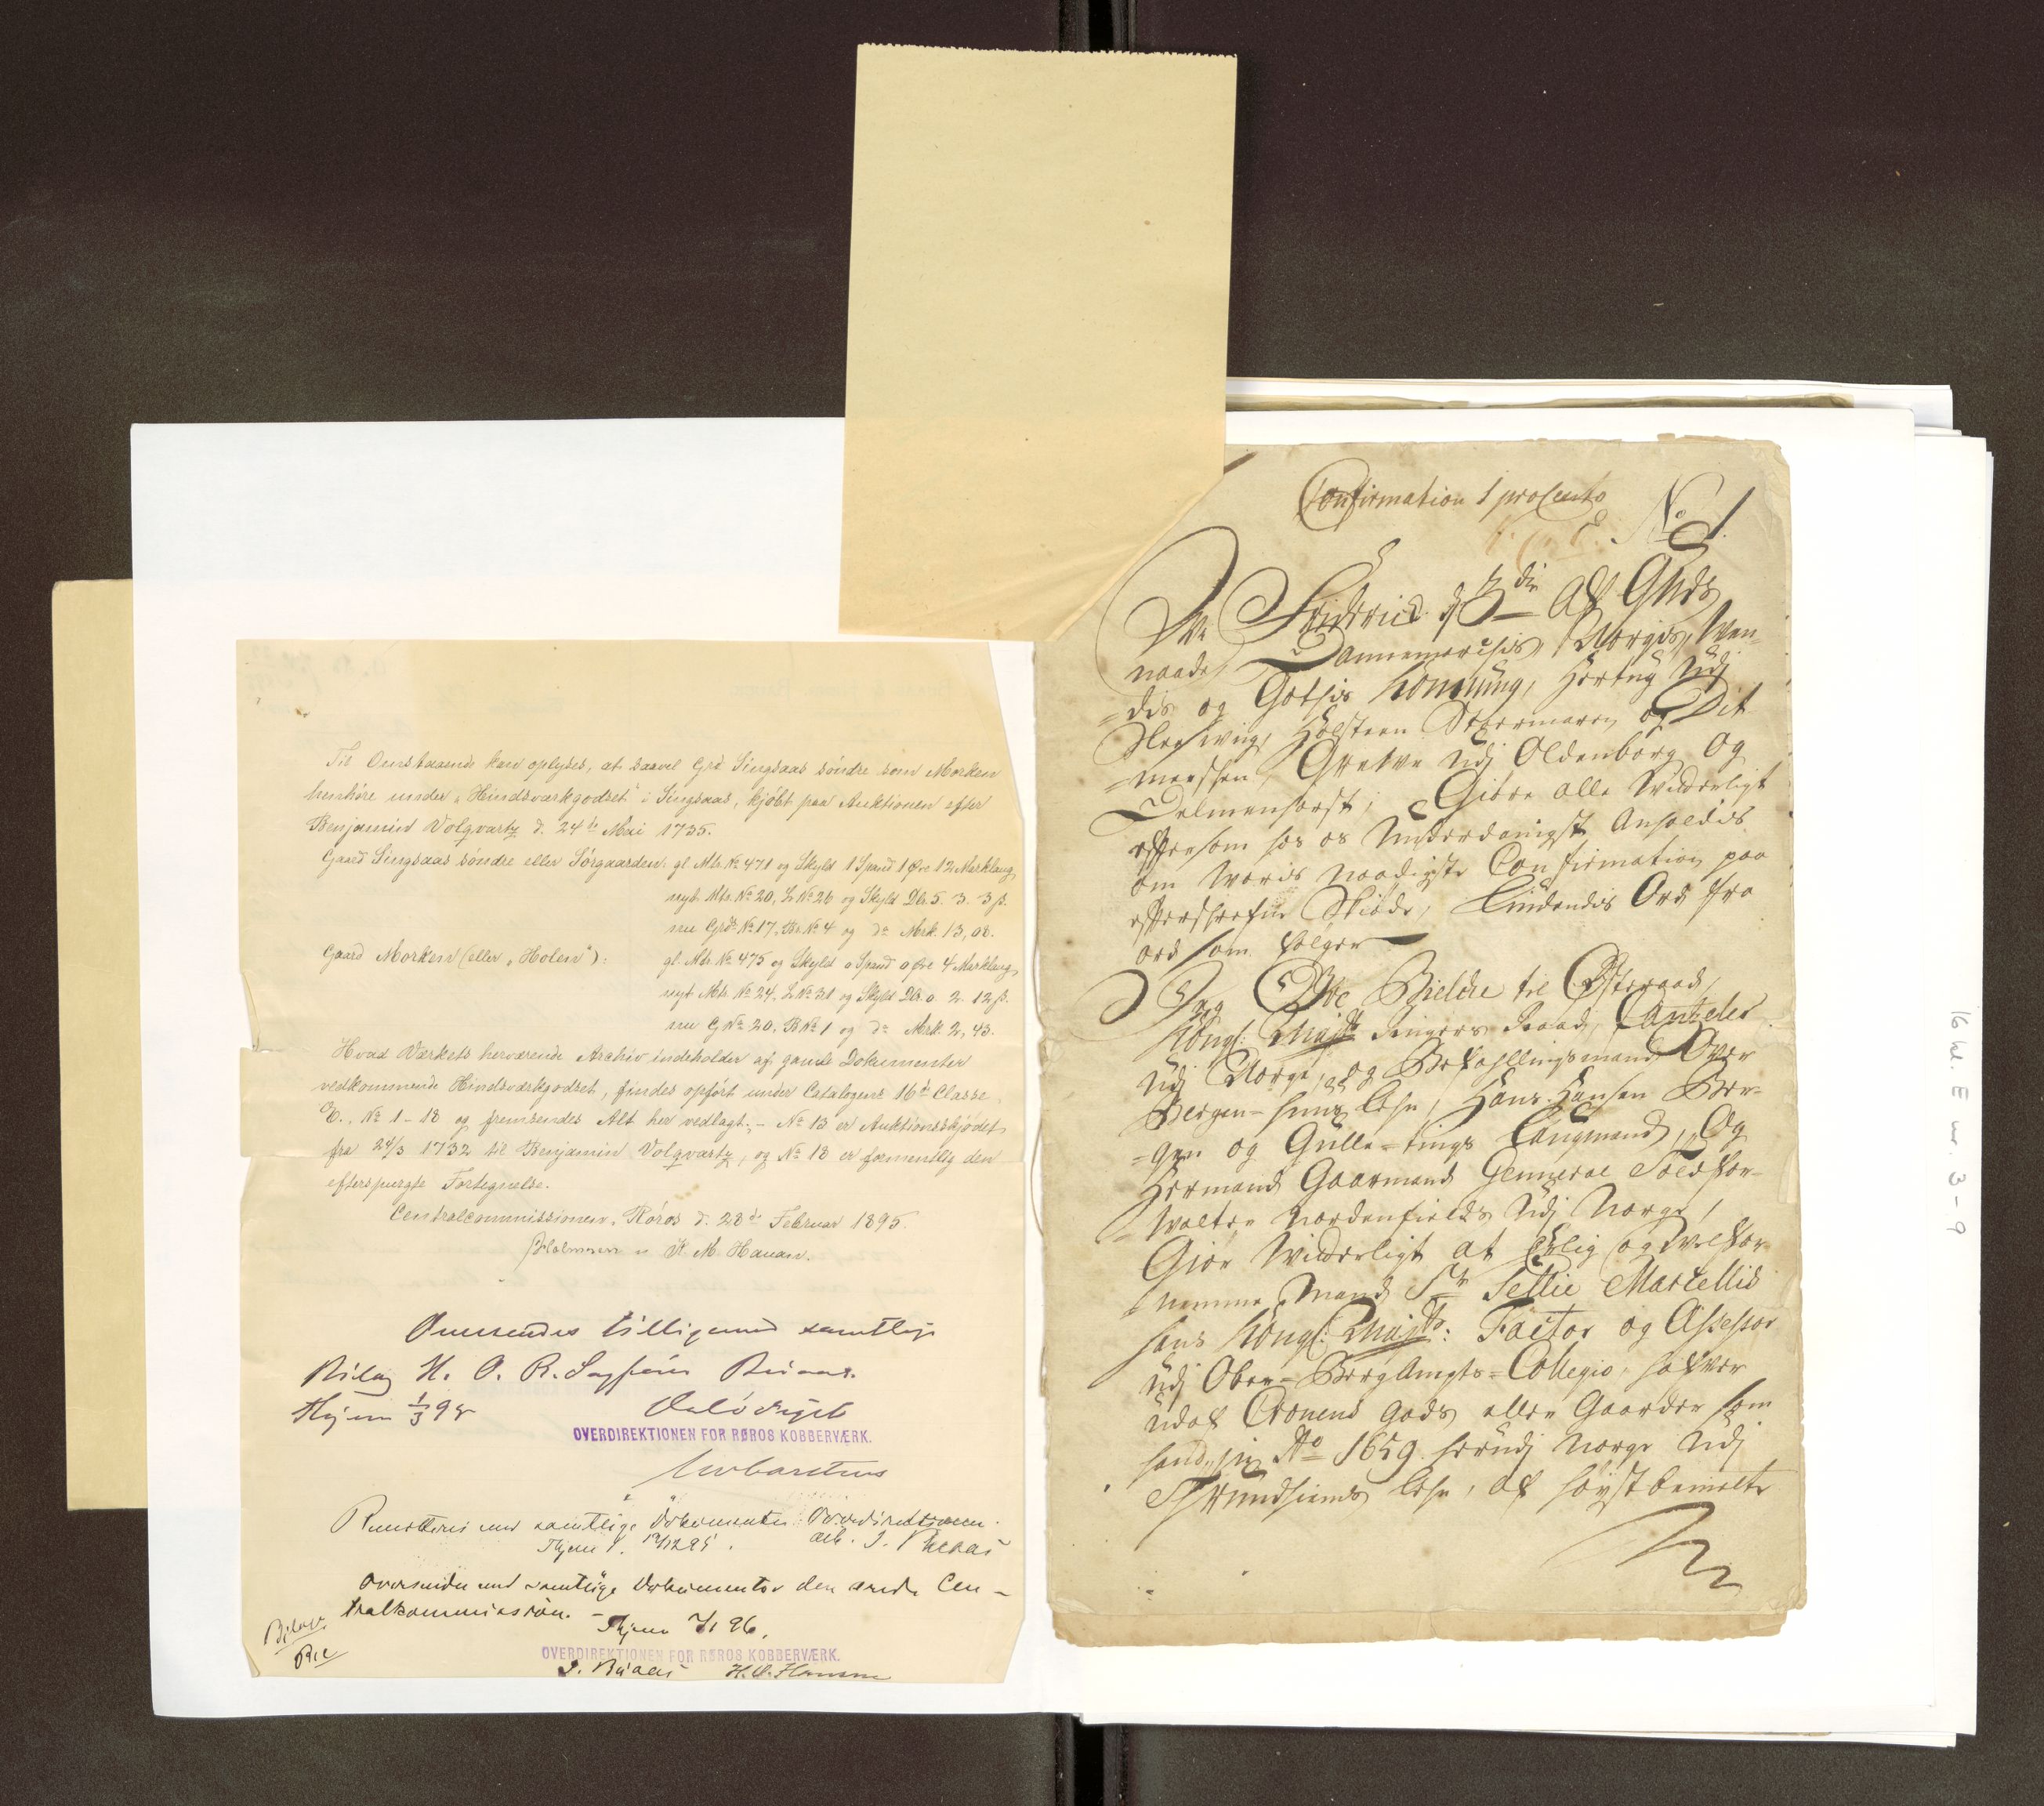 Til Omstaaende kan oplyses, at saavel Grd Singsaas söndre som Morken
henhöre under "Hindsværkgodset" i Singsaas, kjöbt paa Auktionen efter
Benjamin Volqvartz d. 24de Mai 1735.
Gaard Singsaas söndre eller Sörgaarden: gl. Mtr. No 471 og Skyld 1 Spand 1 Öre 12 Marklaug,
nyt Mtr. No 20, L No 26 og Skyld Dlr. 5. 3. 3 ß.
nu Grds No 17, Br. No 4 og do Mrk. 13,08.
Gaard Morken (eller "Holen"): gl. Mtr. No 475 og Skyld 0 Spand 0 Öre 4 Marklaug,
nyt Mtr. No 24, L No 31 og Skyld Dlr. 0. 2. 12 ß.
nu G No 20, B No 1 og do Mrk. 2,43.
Hvad Værkets herværende Archiv indeholder af gamle Dokumenter
vedkommende Hindsværkgodset, findes opført under Catalogens 16de Classe
E., No 1-18 og fremsendes Alt her vedlagt; - No 13 er Auktionsskjödet
fra 24/3 1732 til Benjamin Volqvartz, og No 18 er formentlig den
efterspurgte Fortegnelse.
Centralcommissionen, Röros d. 28de Februar 1895.
M. Hauan.
Omsendes tilligemed samtlige
Bilag H. O. R.
1/3 95
OVERDIREKTIONEN FOR RØROS KOBBERVÆRK.
med samtlige Dokumenter Overdirektionen.
Oversendes med samtlige Dokumenter den ærede Cen-
tralkommission. -
96.
OVERDIREKTIONEN FOR RØROS KOBBERVÆRK.
Confirmation 1 procento
E. No 1.
Wi Friderich d 3die Af Guds
naade, Dannemarchis, Norgis, Wen-
=dis og Gothis Konning, Hertug Udj
Slesswiig, Holsteen Stormarn og Dit
=mersshen, Grefve Udj Oldenborg og
Delmenhorst; Giøre alle Witterligt
eftersom hos os Underdanigst Anholdes
om Woris naadigste Confirmation paa
efterschrefne Skiøde, Liudendis Ord fra
ord som følger
Jeg Ove Bielcke til Østeraad,
Kongl: Majts Raad, Cantzeler
Udj Norge, og Befahllingsmand Over
Bergen=huus lehn, Hans Hansen Ber-
=gen og Gulle=tings Laugmand, Og
Hermand Gaarmand General Toldfor-
=walter Nordenfields Udj Norge,
Giør Witterligt at Ehrlig og Welfor-
nemme Mand Sr Sellie Marcellis
hans Kongl: Majts: Factor og Assessor
Udj Ober=BergAmpts=Collegio, hafver
Udaf Cronens gods eller Gaarder som
hand, in Ao 1659 herudj Norge Udj
Thrundhiembs Lehn, af høystbemelte
16 kl. E nr. 3-9